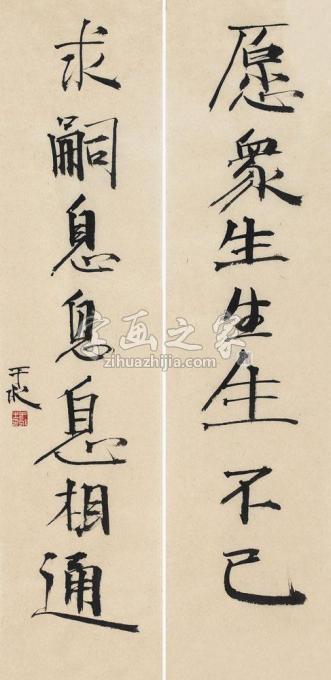 愿眾生生生不已
求嗣息息息相通
字画之家
zihuazhijia.com